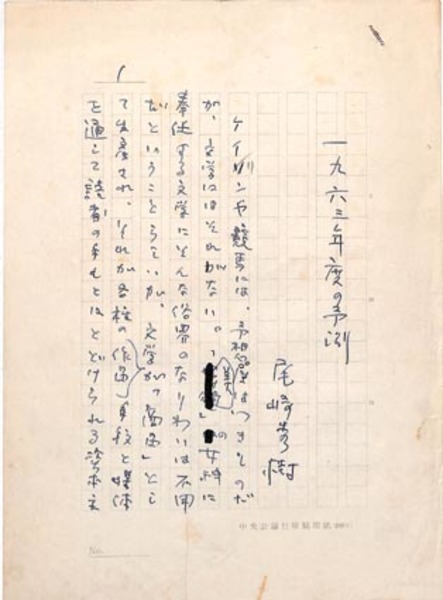 一九六三年度の予測
尾崎秀樹
ケイリンや競馬には、予想屋はつきものだ
が、文学にはそれがない。「美」の女神に
奉仕する文学にそんな俗界のなりわいは不用
だということらしいが、文学が「商品」とし
て生産され、それが各種の手段と媒体
を通じて読者の手もとにとどけられる資本主
1
中央公論社原稿用紙
No.